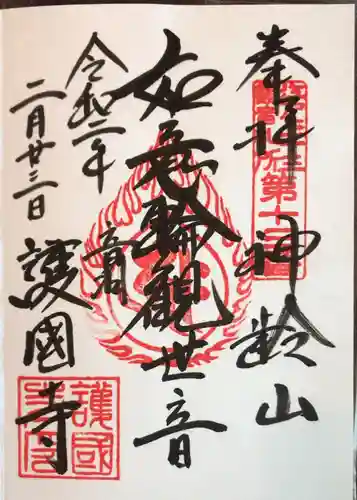 奉拝
神齢山
如意輪観世音
令和二年
二月廿三日
音羽
護國寺
護國